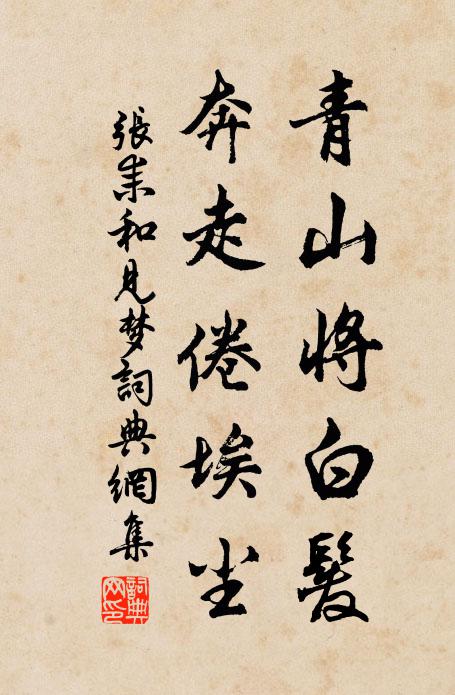 青山將白髮
奔走倦埃尘
張耒和見梦詞典網集
詞典网印